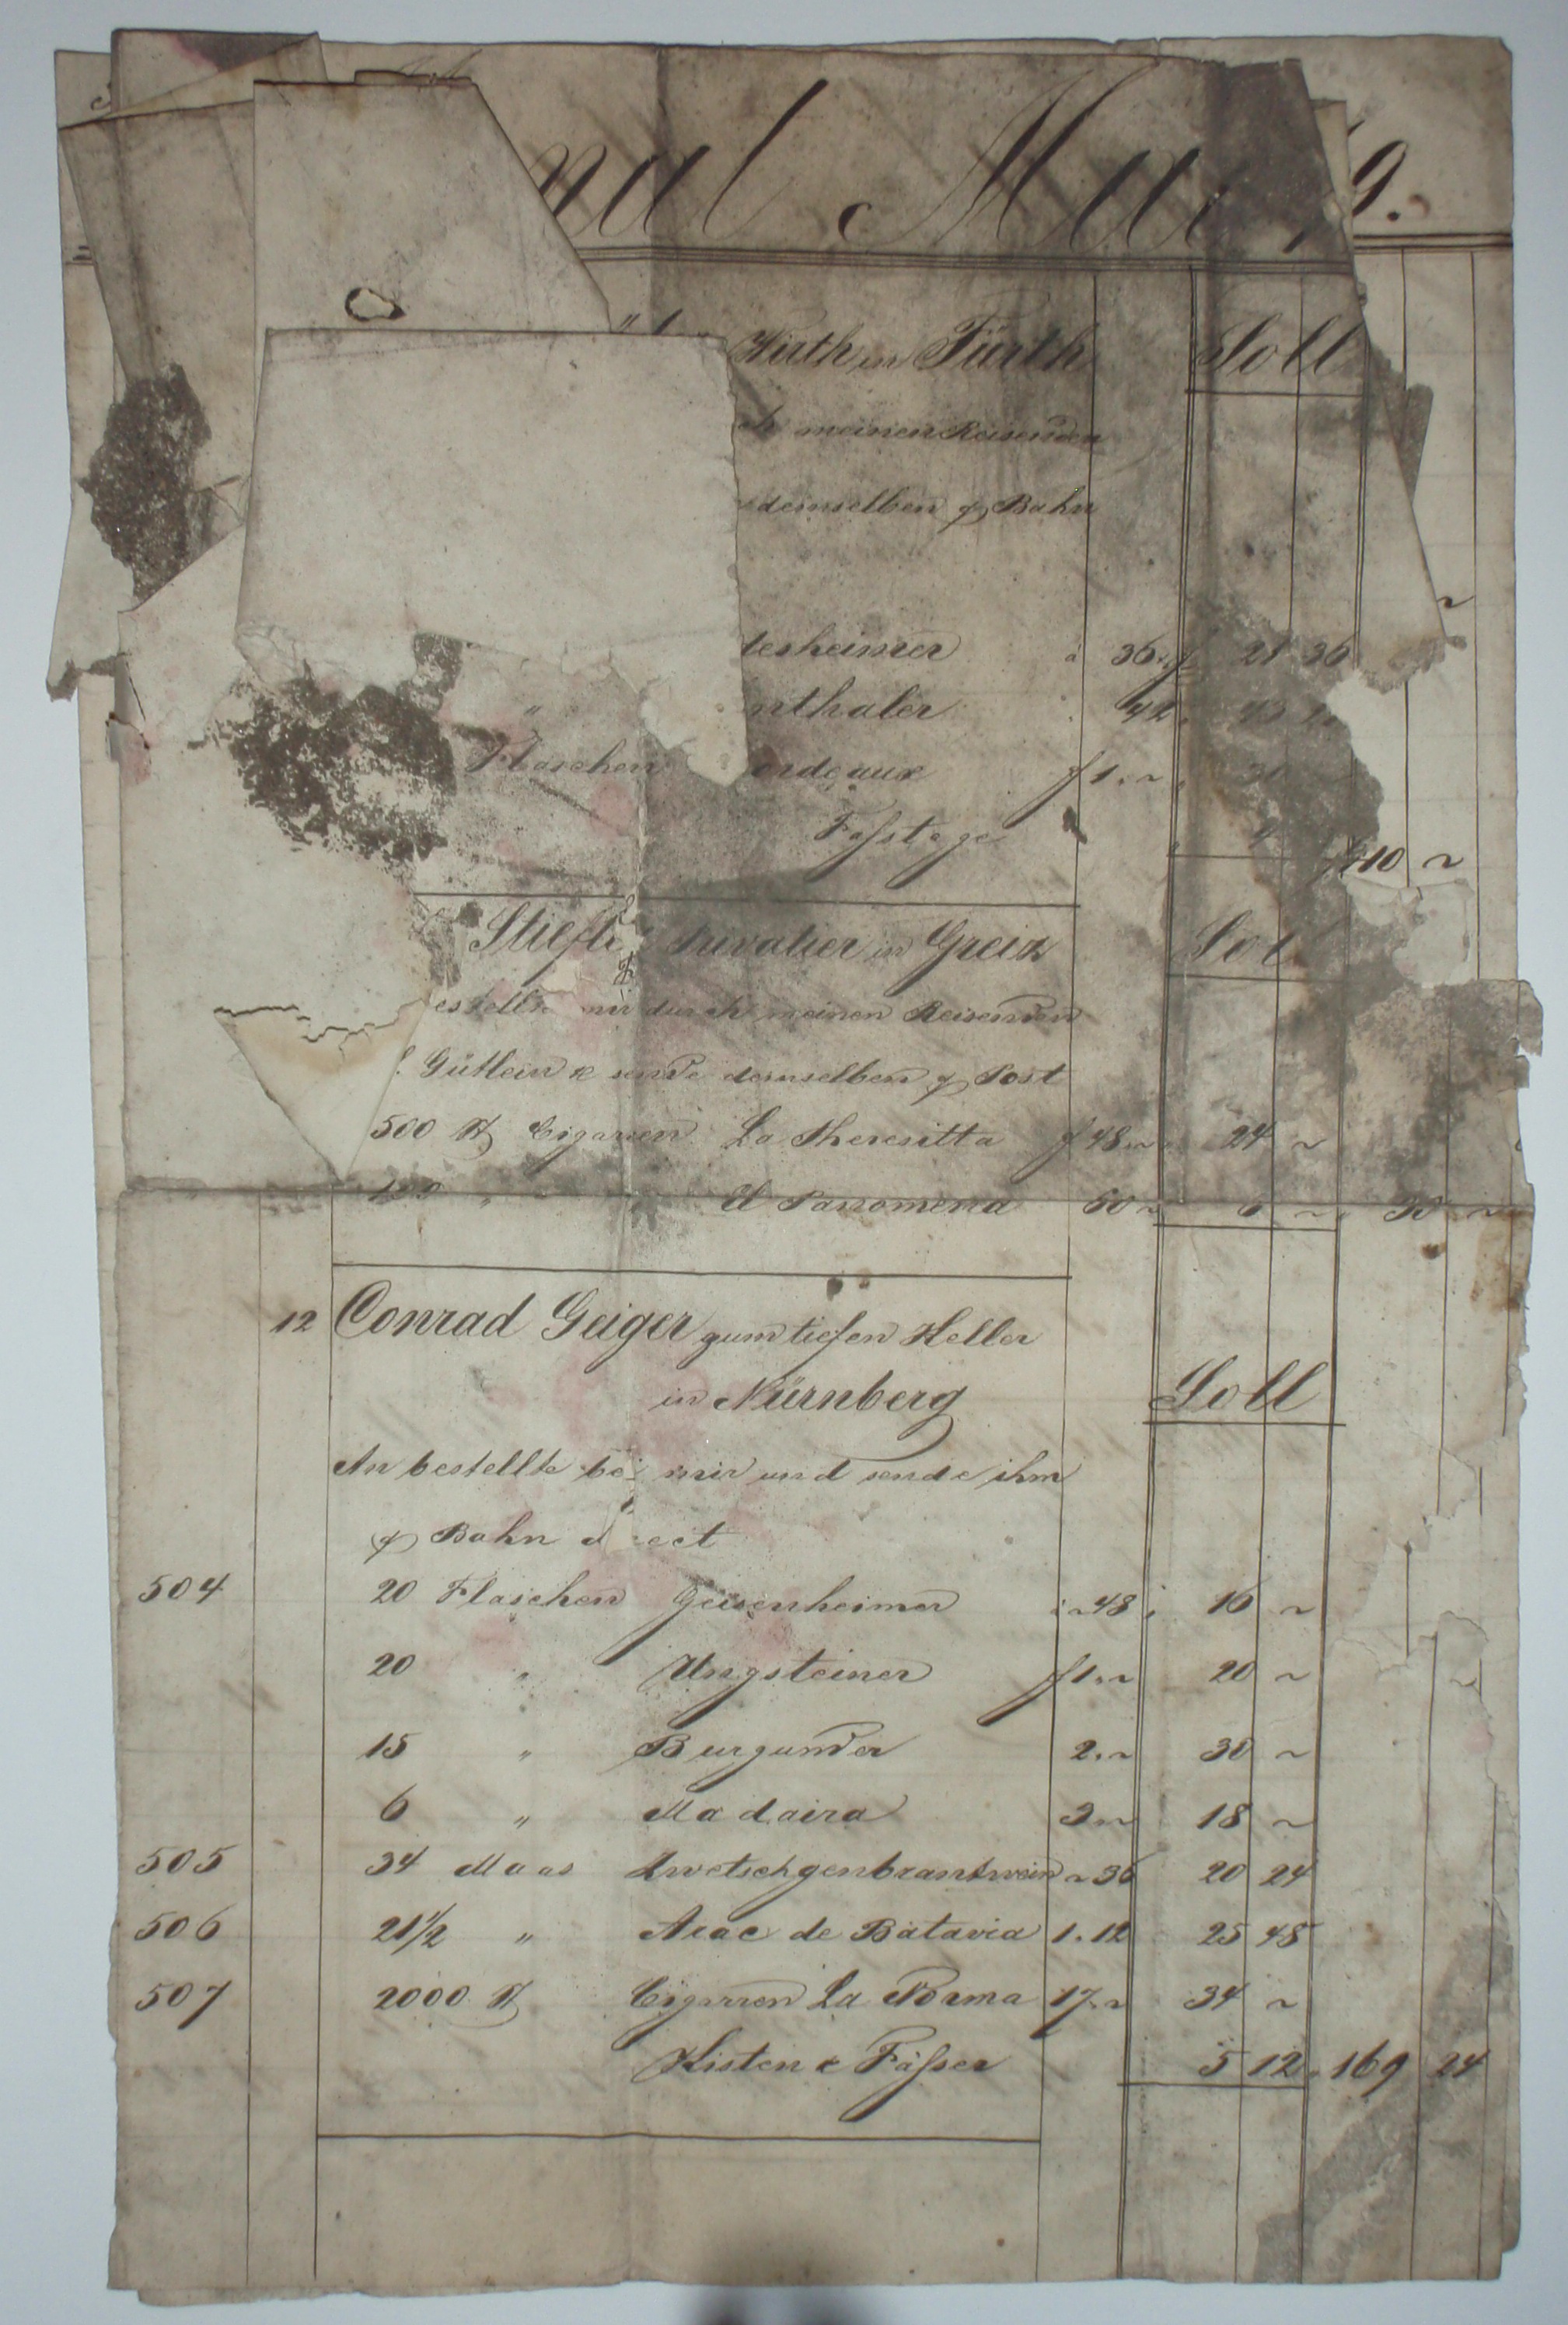 nal Mai 9.
Wirth in Fürth Soll
meinen Reisenden
demselben p Bahn
tesheimer à 36 21 36
" nthaler 42
Flaschen ordeaux f 1. ~
Fasstage 110 ~
Privatier in Greiz Soll
estellte mir durch meinen Reisenden
Gütlein & sende demselben p Post
500 St Cigarren La Theresitta f 48 ~ 24 ~
" El Panomena 60 ~ 6 ~ 30 ~
12 Conrad Geiger zum tiefen Keller
in Nürnberg Soll
An bestellte bei mir und sende ihm
p Bahn direct
504 20 Flaschen Geisenheimer à ~ 48 16 ~
20 " Ungsteiner f 1. ~ 20 ~
15 " Burgunder 2. ~ 30 ~
6 " Madaira 3. ~ 18 ~
505 34 Maas Zwetschgenbrantwein ~ 36 20 24
506 21 1/2 " Arac de Batavia 1. 12 25 48
507 2000 St Cigarren La Norma 17. ~ 34 ~
Kisten & Fässer 5 12 169 24